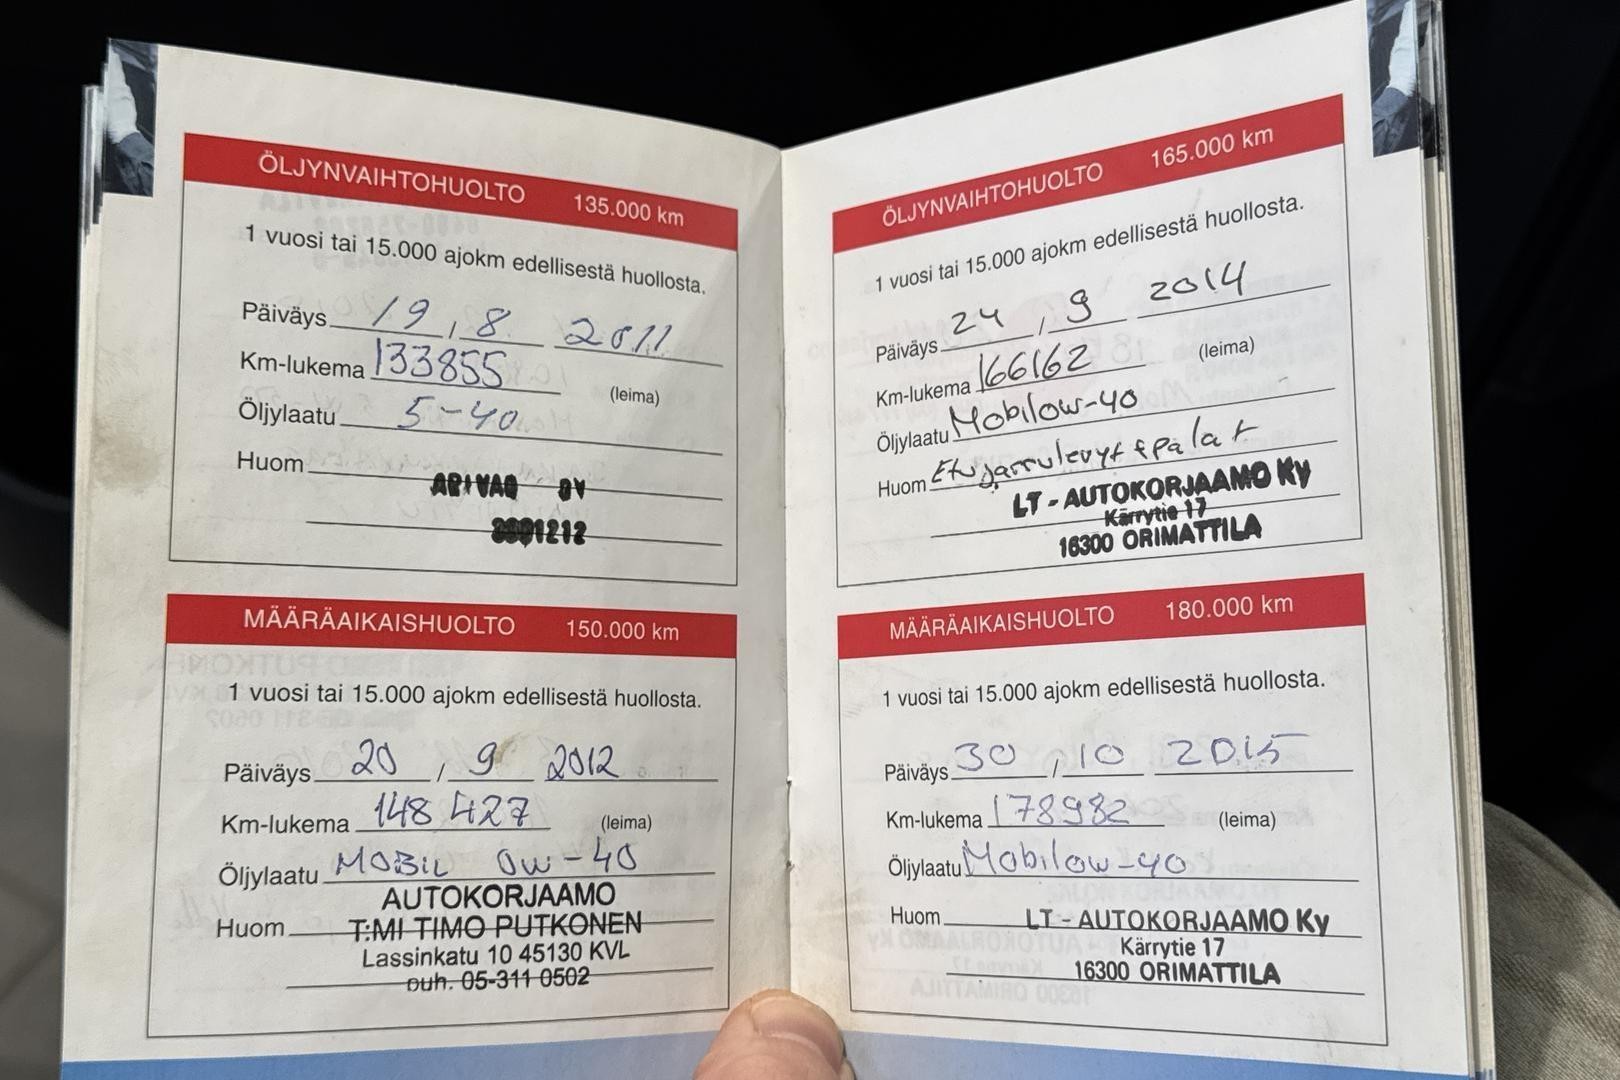 ÖLJYNVAIHTOHUOLTO 135.000 km
1 vuosi tai 15.000 ajokm edellisestä huollosta.
Päiväys 19 / 8 2011
Km-lukema 133855 (leima)
Öljylaatu 5-40
Huom
ARIVAQ OY
MÄÄRÄAIKAISHUOLTO 150.000 km
1 vuosi tai 15.000 ajokm edellisestä huollosta.
Päiväys 20 / 9 2012
Km-lukema 148 427 (leima)
Öljylaatu MOBIL 0W-40
AUTOKORJAAMO
Huom T:MI TIMO PUTKONEN
Lassinkatu 10 45130 KVL
puh. 05-311 0502
ÖLJYNVAIHTOHUOLTO 165.000 km
1 vuosi tai 15.000 ajokm edellisestä huollosta.
Päiväys 24 / 9 2014
Km-lukema 166162 (leima)
Öljylaatu Mobil0W-40
Huom Etujarrulevyt & palat
LT - AUTOKORJAAMO Ky
Kärrytie 17
16300 ORIMATTILA
MÄÄRÄAIKAISHUOLTO 180.000 km
1 vuosi tai 15.000 ajokm edellisestä huollosta.
Päiväys 30 / 10 2015
Km-lukema 178982 (leima)
Öljylaatu Mobil0W-40
Huom LT - AUTOKORJAAMO Ky
Kärrytie 17
16300 ORIMATTILA